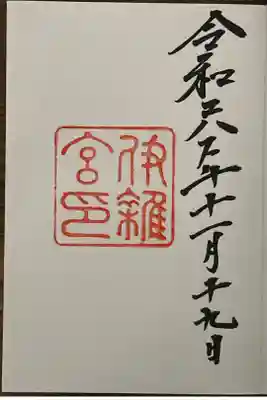 令和六年十一月十九日
伊雜
宮印